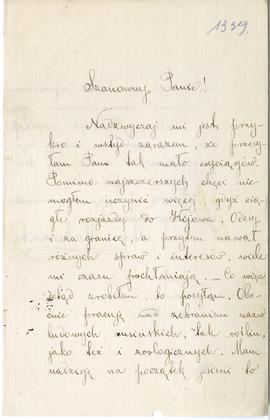 1339.
Szanowny Panie!
Nadzwyczaj mi jest przy-
kro i wstyd zarazem, że przesy-
łam Panu tak mało wyciągów.
Pomimo najszczerszych chęci nie
mogłem uczynić więcej gdyż cią-
głe rozjazdy do Kijowa, Odesy
i za granicę, a przytem nawał
różnych spraw i interesów, wiele
mi czasu pochłaniają. – Co więc
dotąd zrobiłem to posyłam. Obe-
cnie pracuję nad zebraniem nazw
ludowych rusińskich, tak roślin,
jako też i zoologicznych. Mam
nadzieję na początek jesieni to